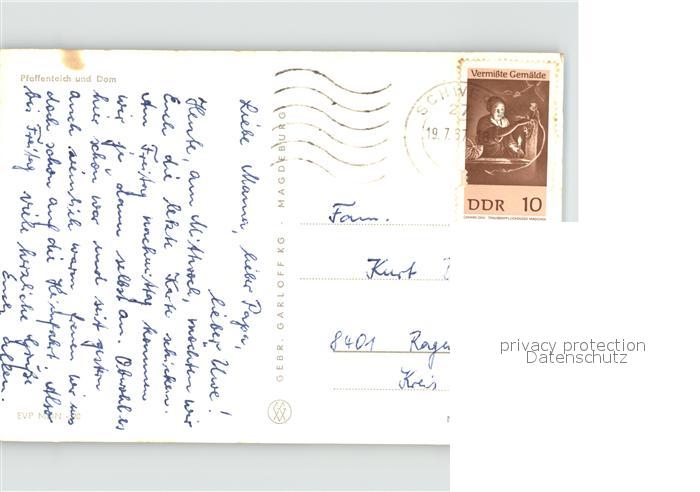 Pfaffenteich und Dom
Liebe Mama, lieber Papa,
lieber Uwe!
Heute, am Mittwoch, möchten wir
Euch die letzte Karte schicken.
Am Freitag nachmittag kommen
wir ja dann selbst an. Obwohl es
hier schön war und seit gestern
auch ziemlich warm, freuen wir uns
doch schon auf die Heimfahrt. Also
bis Freitag viele herzliche Grüße
Eure
EVP MDN
GEBR. GARLOFF KG · MAGDEBURG
SCHW
19.7.67
Vermißte Gemälde
DDR 10
Fam.
Kurt
8401
Kreis
privacy protection
Datenschutz